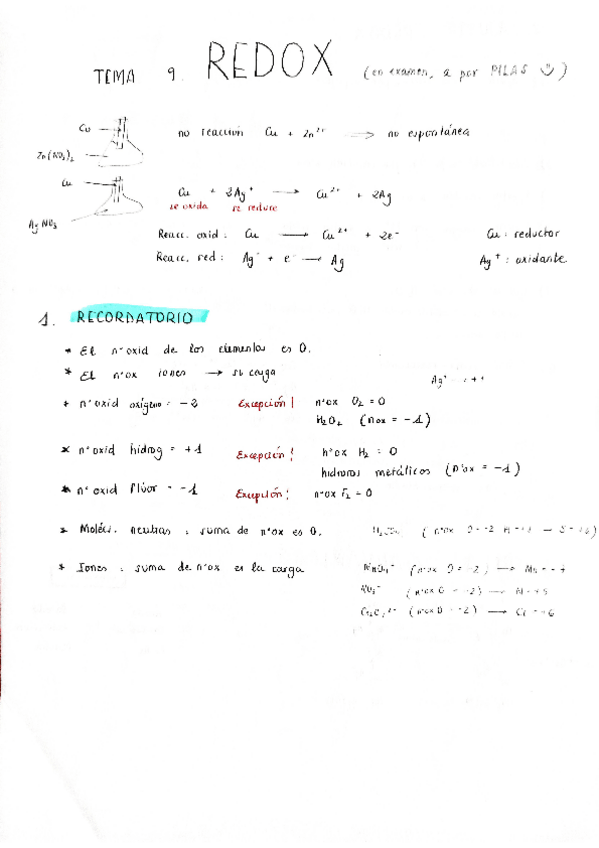 TEMA 9. REDOX (en examen, a por PILAS ☺)
Cu
no reacción Cu + Zn²⁺ ⟶ no espontánea
Zn(NO₃)₂
Cu
Cu + 2Ag⁺ ⟶ Cu²⁺ + 2Ag
se oxida se reduce
AgNO₃
Reacc. oxid : Cu ⟶ Cu²⁺ + 2e⁻ Cu : reductor
Reacc. red : Ag⁺ + e⁻ ⟶ Ag Ag⁺ : oxidante
1. RECORDATORIO
* El n°oxid de los elementos es 0.
* El n°ox iones ⟶ su carga Ag⁺
* n°oxid oxígeno = -2 Excepción! n°ox O₂ = 0
H₂O₂ (nox = -1)
* n°oxid hidrog = +1 Excepción! n°ox H₂ = 0
hidruros metálicos (n°ox = -1)
* n°oxid flúor = -1 Excepción! n°ox F₂ = 0
* Moléc. neutras : suma de n°ox es 0.
* Iones : suma de n°ox es la carga
(n°ox O = -2) ⟶
(n°ox O = -2) ⟶
Cr₂O₇²⁻ (n°ox O = -2) ⟶ Cr = +6